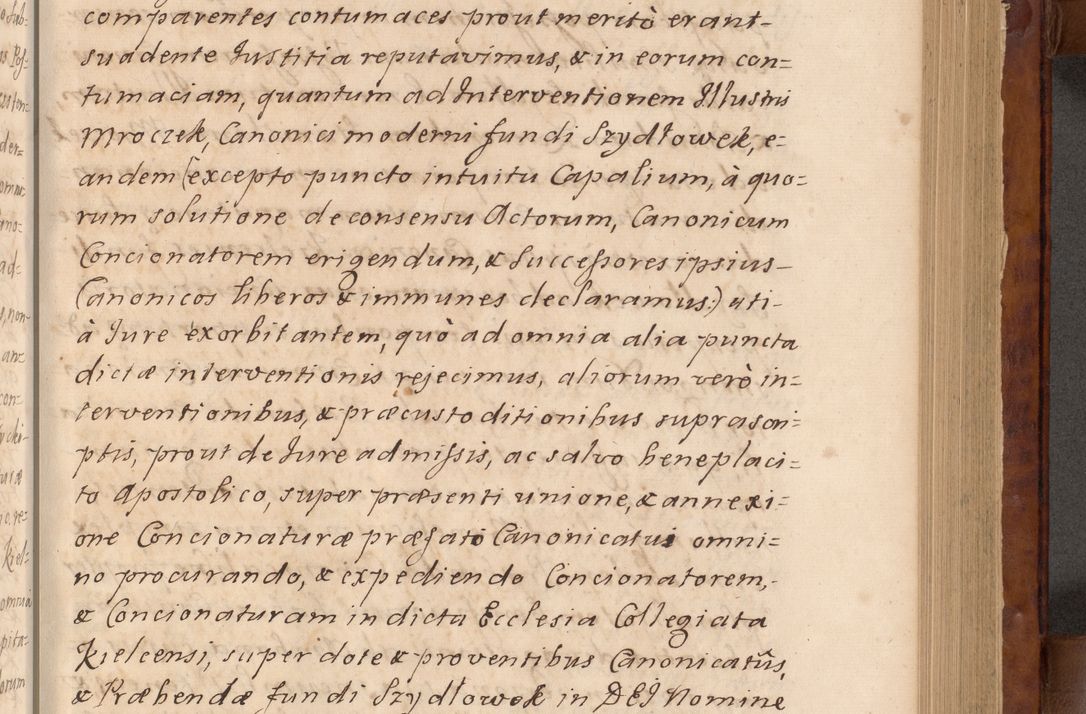 comparentes contumaces prout meritò erant-
suadente Iustitia reputavimus, & in eorum con=
tumaciam, quantum ad Interventionem Illustris
Mroczek, Canonici moderni fundi Szydłowek, e=
andem (excepto puncto intuitu Capalium, à quo=
rum solutione de consensu Actorum, Canonicum
Concionatorem erigendum, & Successores ipsius-
Canonicos liberos & immunes declaramus:) uti-
à Iure exorbitantem, quò ad omnia alia puncta
dictæ interventionis rejecimus, aliorum verò in=
terventionibus, & præcustoditionibus suprascri=
ptis, prout de Iure admissis, ac salvo beneplaci=
to Apostolico, super præsenti unione, & annexi=
one Concionaturæ præfati Canonicatui omni=
no procurando, & expediendo Concionatorem,-
& Concionaturam in dicta Ecclesia Collegiata
Kielcensi, super dote & proventibus Canonicatûs,
& Præbendæ fundi Szydłowek in DEI Nomine